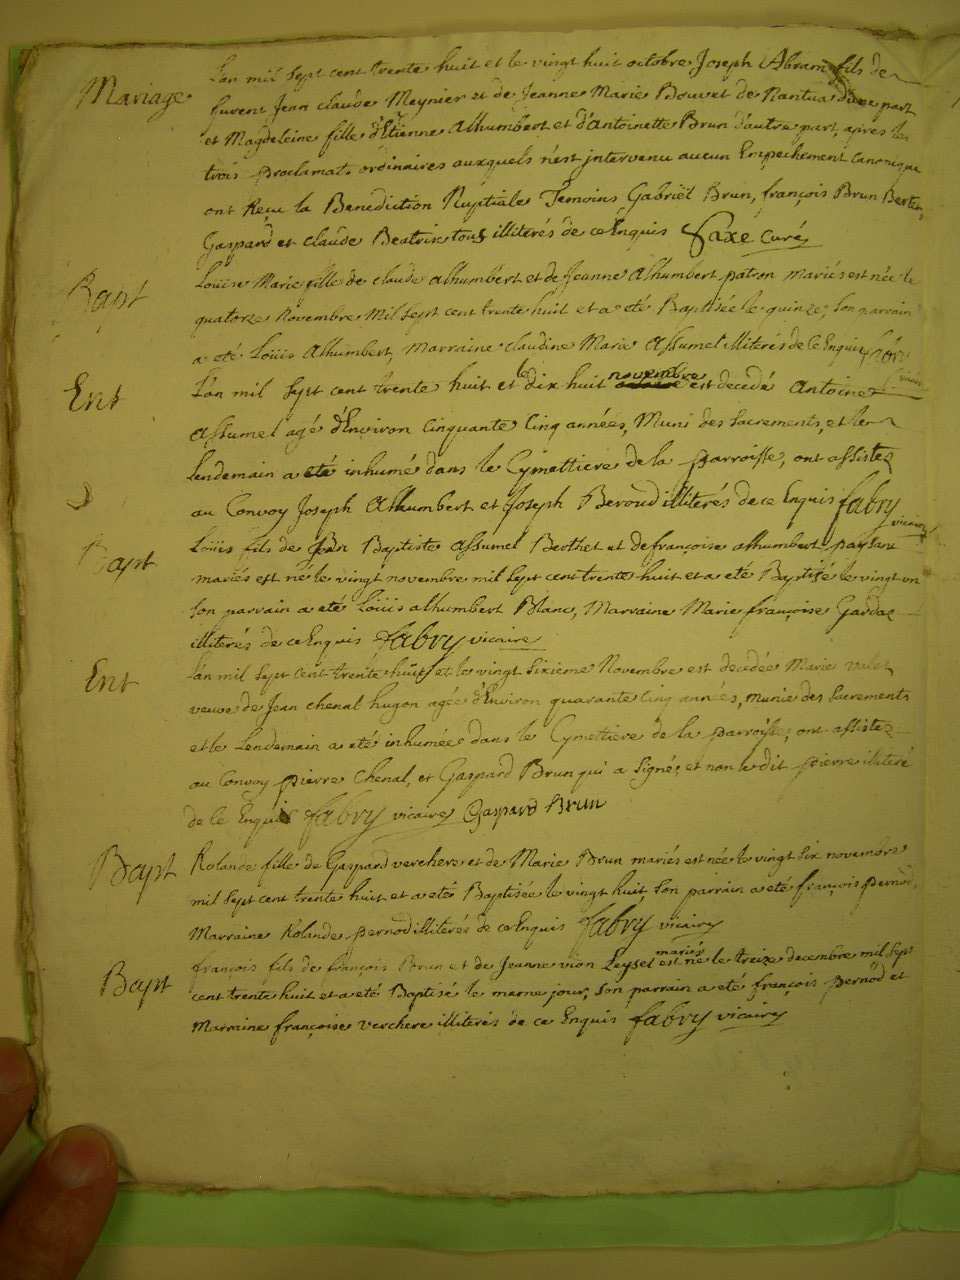 Mariage
L'an mil sept cent trente huit et le vingt huit octobre Joseph Abram fils de
furent Jean claude Meynier et de Jeanne Marie Bouvet de Nantua d'une part
et Magdeleine fille d'Etienne Alhumbert et d'Antoinette Brun d'autre part, apres les
trois proclamats ordinaires auxquels n'est intervenu aucun Empechement canonique
ont Reçu la Benediction Nuptiale Temoins Gabriël Brun, françois Brun Bertin,
Gaspard et claude Beatrix tous illiterés de ce Enquis Saxe curé
Bapt
Louise Marie fille de claude alhumbert et de Jeanne Alhumbert patron mariés est née le
quatorze Novembre Mil sept cent trente huit et a eté Baptisée le quinze, son parrain
a eté Loüis Alhumbert, Marraine claudine Marie Assumel illiterés de ce Enquis
Ent
L'an mil sept cent trente huit et le dix huit novembre est decedé Antoine
Assumel agé d'Environ Cinquante Cinq années, Muni des sacrements, et le
Lendemain a eté inhumé dans le Cymettiere de la parroisse, ont assistez
au Convoy Joseph Alhumbert et Joseph Beroud illiterés de ce Enquis fabry vicaire
Bapt
Loüis fils de Jean Baptiste Assumel Berthet et de françoise alhumbert paysan
mariés est né le vingt novembre mil sept cent trente huit et a eté Baptisé le vingt un
son parrain a eté Loüis alhumbert Blanc, Marraine Marie françoise Gardaz
illiterés de ce Enquis fabry vicaire
Ent
L'an mil sept cent trente huit et le vingt sixieme Novembre est decedée Marie valet
veuve de Jean chenal hugon agée d'Environ quarante Cinq années, munie des sacrements
et le Lendemain a eté inhumée dans le Cymettiere de la parroisse, ont assistez
au Convoy pierre Chenal, et Gaspard Brun qui a signé, et non le dit pierre illiteré
de le Enquis fabry vicaire Gaspard Brun
Bapt
Rolande fille de Gaspard verchere et de Marie Brun mariés est née le vingt six novembre
mil sept cent trente huit et a eté Baptisée le vingt huit, son parrain a eté françois pernod,
Marraine Rolande pernod illiterés de ce Enquis fabry vicaire
Bapt
françois fils de françois Brun et de Jeanne vion Leysel mariés est né le treize decembre mil sept
cent trente huit et a eté Baptisé le meme jour, son parrain a eté françois pernod et
Marraine françoise verchere illiterés de ce Enquis fabry vicaire